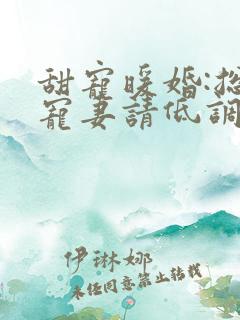 甜寵暖婚:總
寵妻請低調
伊琳娜
未經同意禁止轉載